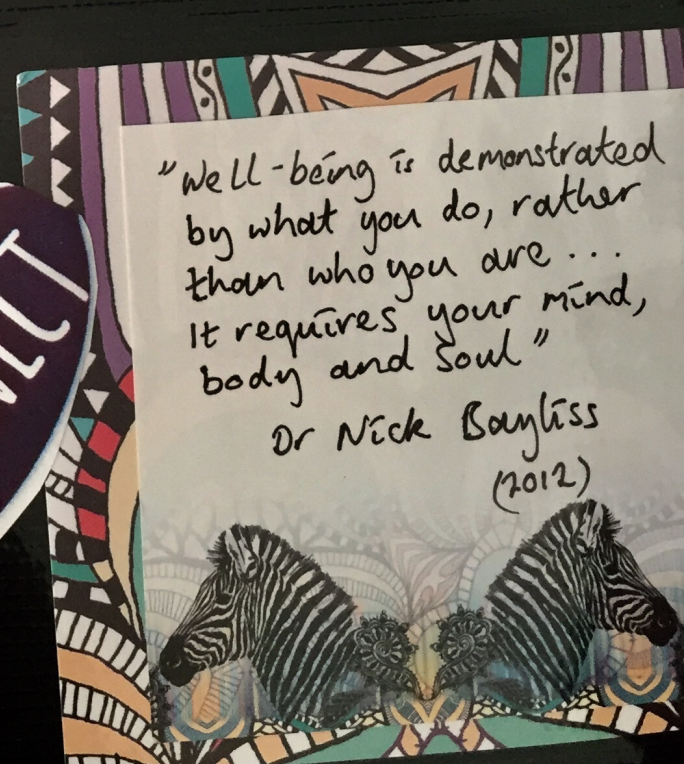 "Well-being is demonstrated
by what you do, rather
than who you are ...
It requires your mind,
body and soul"
Dr Nick Bayliss
(2012)